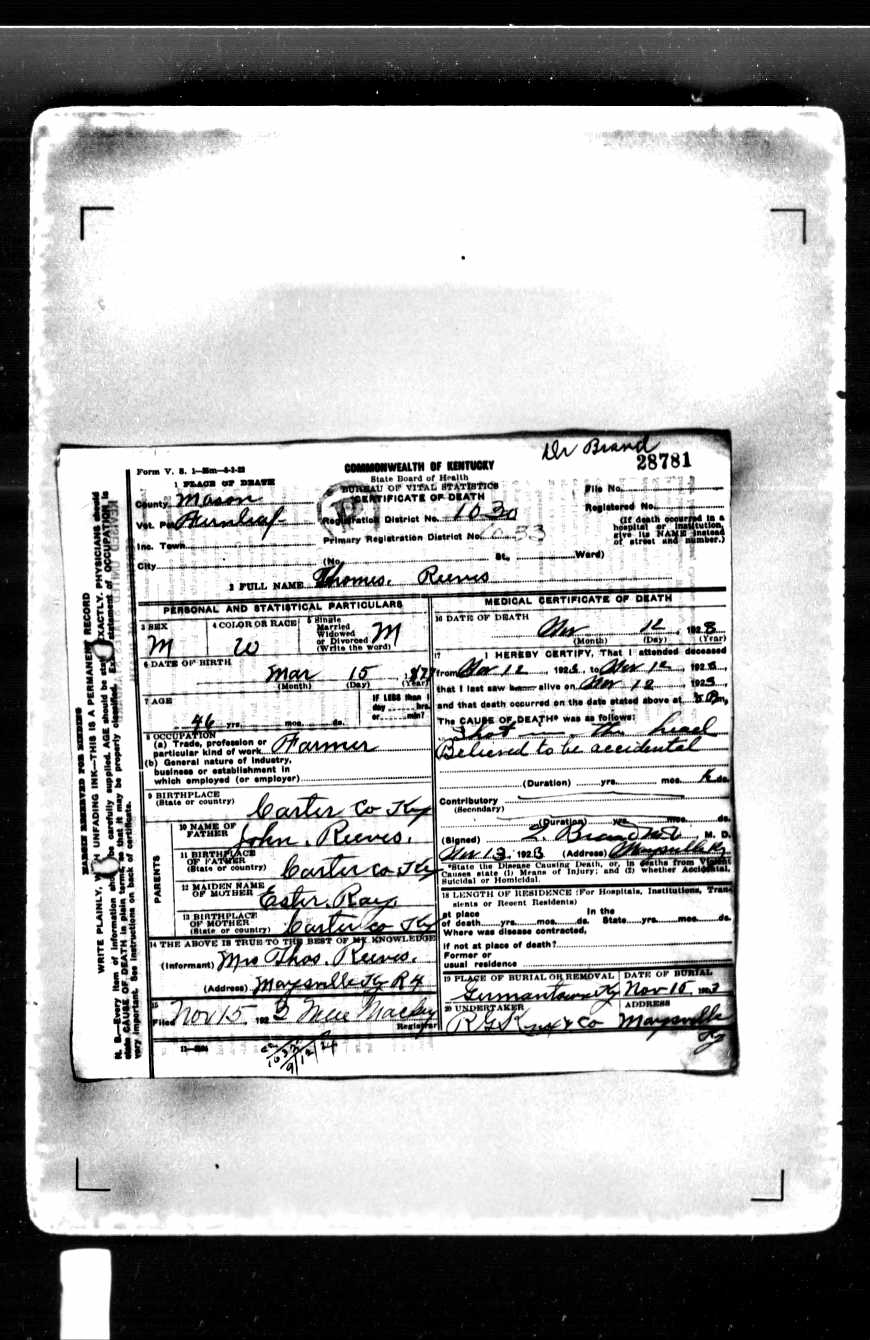 Dr Brand
28781
Form V. S. 1
COMMONWEALTH OF KENTUCKY
State Board of Health
BUREAU OF VITAL STATISTICS
CERTIFICATE OF DEATH
1 PLACE OF DEATH
County Mason
Vot. Pct
Inc. Town
City
Registration District No. 1030
Primary Registration District No.
(No. St., Ward)
File No.
Registered No.
(If death occurred in a hospital or institution, give its NAME instead of street and number.)
2 FULL NAME Thomas. Reeves
PERSONAL AND STATISTICAL PARTICULARS
3 SEX
M
4 COLOR OR RACE
W
5 Single
Married
Widowed
or Divorced
(Write the word)
M
6 DATE OF BIRTH
Mar 15
(Month) (Day) (Year)
7 AGE
46 yrs. mos. ds.
IF LESS than 1
day hrs.
or min?
8 OCCUPATION
(a) Trade, profession or
particular kind of work Farmer
(b) General nature of industry,
business or establishment in
which employed (or employer)
9 BIRTHPLACE
(State or country) Carter Co Ky
PARENTS
10 NAME OF
FATHER John. Reeves.
11 BIRTHPLACE
OF FATHER
(State or country) Carter Co Ky
12 MAIDEN NAME
OF MOTHER Ester. Ray
13 BIRTHPLACE
OF MOTHER
(State or country) Carter Co Ky
14 THE ABOVE IS TRUE TO THE BEST OF MY KNOWLEDGE
(Informant) Mrs Thos. Reeves.
(Address) Maysville Ky R4
15
Filed Nov 15 192 3
Registrar
MEDICAL CERTIFICATE OF DEATH
16 DATE OF DEATH
Nov 12 192 3
(Month) (Day) (Year)
17 I HEREBY CERTIFY, That I attended deceased
from Nov 12 192 , to Nov 12 192
that I last saw alive on Nov 12 192 3
and that death occurred on the date stated above at m,
The CAUSE OF DEATH* was as follows:
Shot in the head
Believed to be accidental
(Duration) yrs. mos. ds.
Contributory
(Secondary)
(Duration) yrs. mos. ds.
(Signed) Brand M.D., M. D.
Nov 13, 192 3 (Address) Maysville Ky
*State the Disease Causing Death, or, in deaths from Violent
Causes state (1) Means of Injury; and (2) whether Accidental,
Suicidal or Homicidal.
18 LENGTH OF RESIDENCE (For Hospitals, Institutions, Tran-
sients or Recent Residents)
At place
of death yrs. mos. ds. In the State yrs. mos. ds.
Where was disease contracted,
if not at place of death?
Former or
usual residence
19 PLACE OF BURIAL OR REMOVAL
Germantown Ky
DATE OF BURIAL
Nov 15 192 3
20 UNDERTAKER
ADDRESS
Maysville
Ky
MARGIN RESERVED FOR BINDING
WRITE PLAINLY, WITH UNFADING INK—THIS IS A PERMANENT RECORD
N. B.—Every item of information should be carefully supplied. AGE should be stated EXACTLY. PHYSICIANS should
state CAUSE OF DEATH in plain terms, so that it may be properly classified. Exact statement of OCCUPATION is
very important. See instructions on back of certificate.